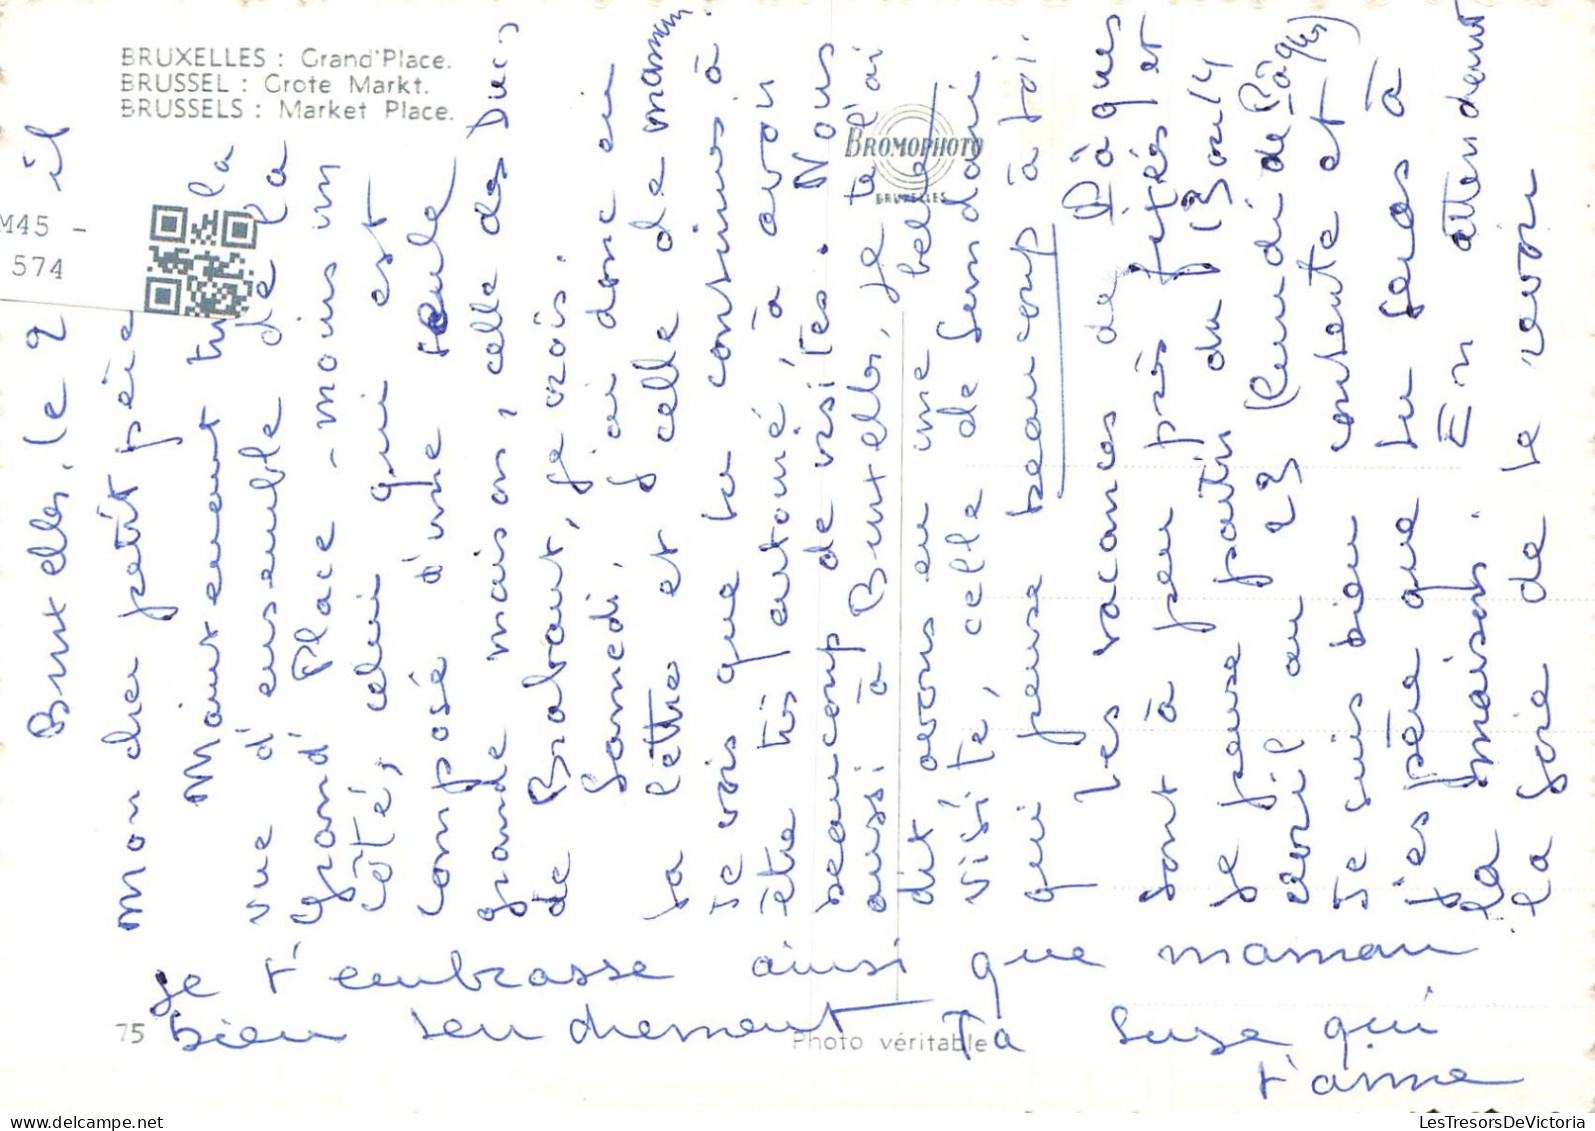 BRUXELLES : Grand'Place.
BRUSSEL : Grote Markt.
BRUSSELS : Market Place.
M45 -
574
BROMOPHOTO
BRUXELLES
Bruxelles, le 2 il
Mon cher petit père
Maintenant tu la
vue d'ensemble de la
Grand' Place - moins un
côté, celui qui est
composé d'une seule
grande maison, celle des Ducs
de Brabant, je crois.
Samedi, j'ai donc eu
ta lettre et celle de maman.
Je vois que tu continues à
être très entouré, à avoir
beaucoup de visites. Nous
aussi à Bruxelles, je te l'ai
dit avons eu une belle
visite, celle de Sendani
qui pense beaucoup à toi.
Les vacances de Pâques
sont à peu près fixées et
je pense partir du 13 ou 14
avril au 23 (lundi de Pâques)
Je suis bien contente et
j'espère que tu seras à
la maison. En attendant
la joie de te revoir
je t'embrasse ainsi que maman
bien tendrement Ta Suze qui
t'aime
75
Photo véritable
LesTresorsDeVictoria